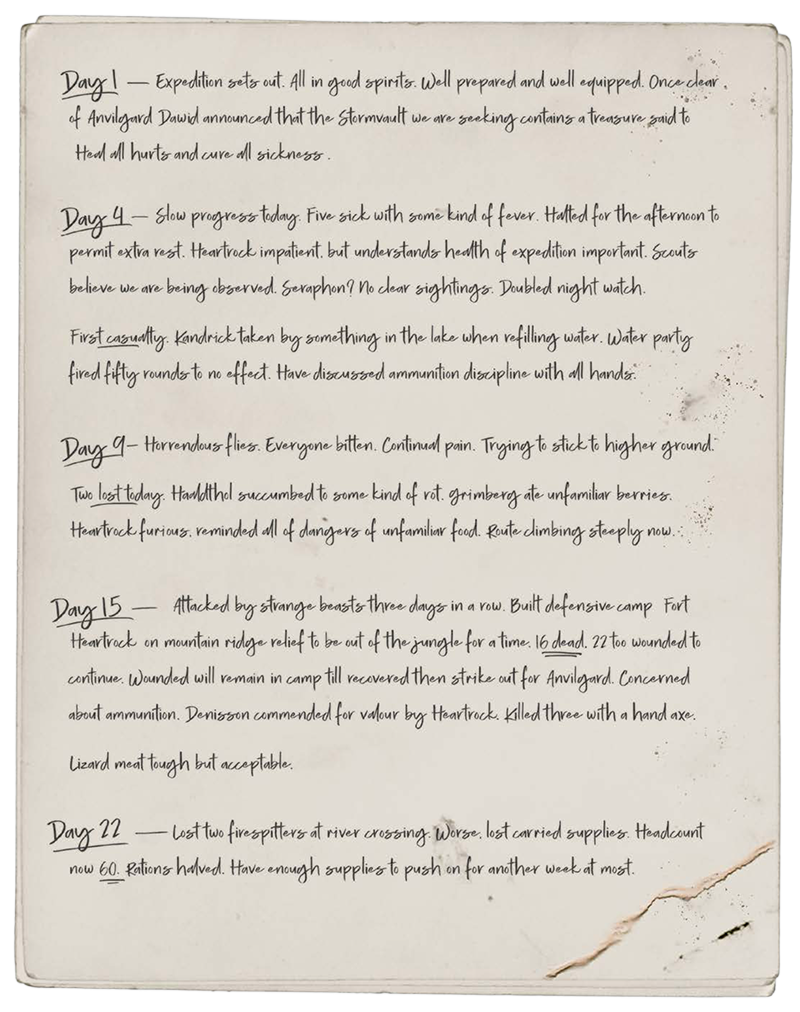 Day 1 — Expedition sets out. All in good spirits. Well prepared and well equipped. Once clear
of Anvilgard Dawid announced that the Stormvault we are seeking contains a treasure said to
Heal all hurts and cure all sickness.
Day 4 — Slow progress today. Five sick with some kind of fever. Halted for the afternoon to
permit extra rest. Heartrock impatient, but understands health of expedition important. Scouts
believe we are being observed. Seraphon? No clear sightings. Doubled night watch.
First casualty. Kandrick taken by something in the lake when refilling water. Water party
fired fifty rounds to no effect. Have discussed ammunition discipline with all hands.
Day 9 — Horrendous flies. Everyone bitten. Continual pain. Trying to stick to higher ground.
Two lost today. Haddthol succumbed to some kind of rot. Grimberg ate unfamiliar berries.
Heartrock furious, reminded all of dangers of unfamiliar food. Route climbing steeply now.
Day 15 — Attacked by strange beasts three days in a row. Built defensive camp Fort
Heartrock on mountain ridge relief to be out of the jungle for a time. 16 dead. 22 too wounded to
continue. Wounded will remain in camp till recovered then strike out for Anvilgard. Concerned
about ammunition. Denisson commended for valour by Heartrock. Killed three with a hand axe.
Lizard meat tough but acceptable.
Day 22 — Lost two firespitters at river crossing. Worse, lost carried supplies. Headcount
now 60. Rations halved. Have enough supplies to push on for another week at most.